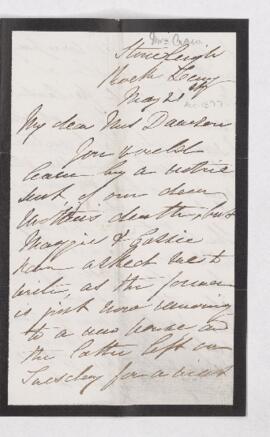 Mrs Craw
Stone Leigh
Rock Ferry
May 21st
My dear Mrs Dawson
You would
learn by a notice
sent, of our dear
Mother's death, but
Maggie & Cassie
have asked me to
write as the former
is just now removing
to a new house and
the latter left on
Tuesday for a visit